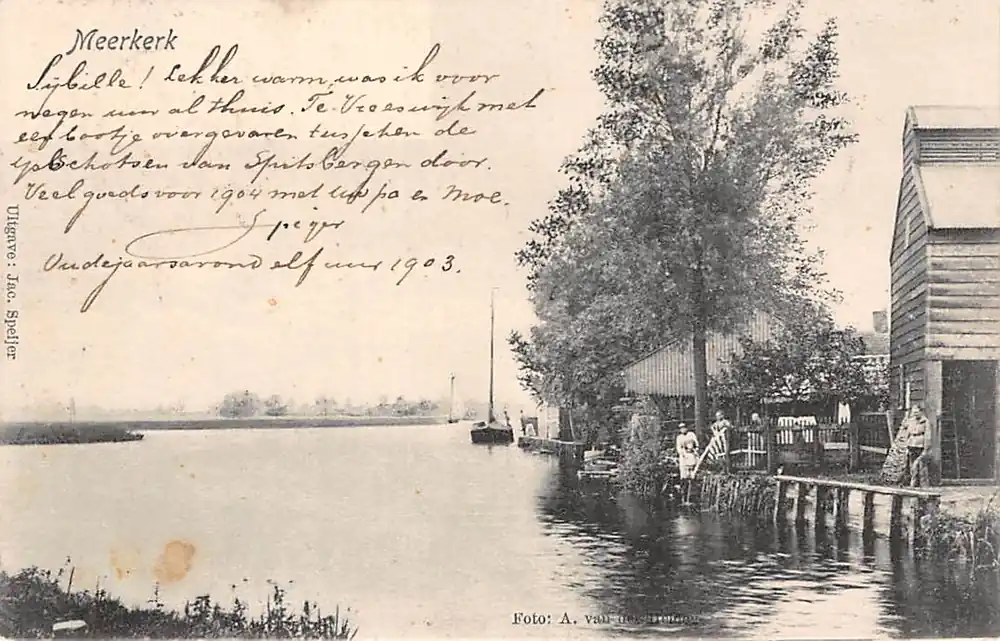 Meerkerk
Sijbille! Lekker warm was ik voor
negen uur al thuis. Te Vreeswijk met
een bootje overgevaren tusschen de
ijsschotsen van Spitsbergen door.
Veel goeds voor 1904 met Uw pa en Moe.
Speijer
Oudejaarsavond elf uur 1903.
Uitgave: Jac. Speijer
Foto: A. van der